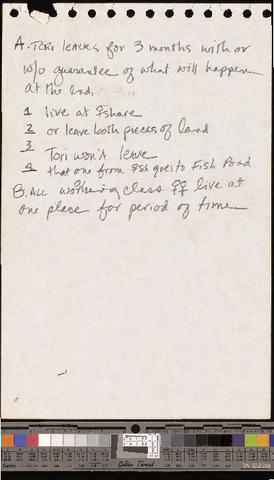 A. Tori leaves for 3 months with or
w/o guarantee of what will happen
at the end.
1 live at ♀share
2 or leave both pieces of land
3 Tori won't leave
4 that one from ♀sh goes to Fish Pond
B. All working class ♀♀ live at
one place for period of time